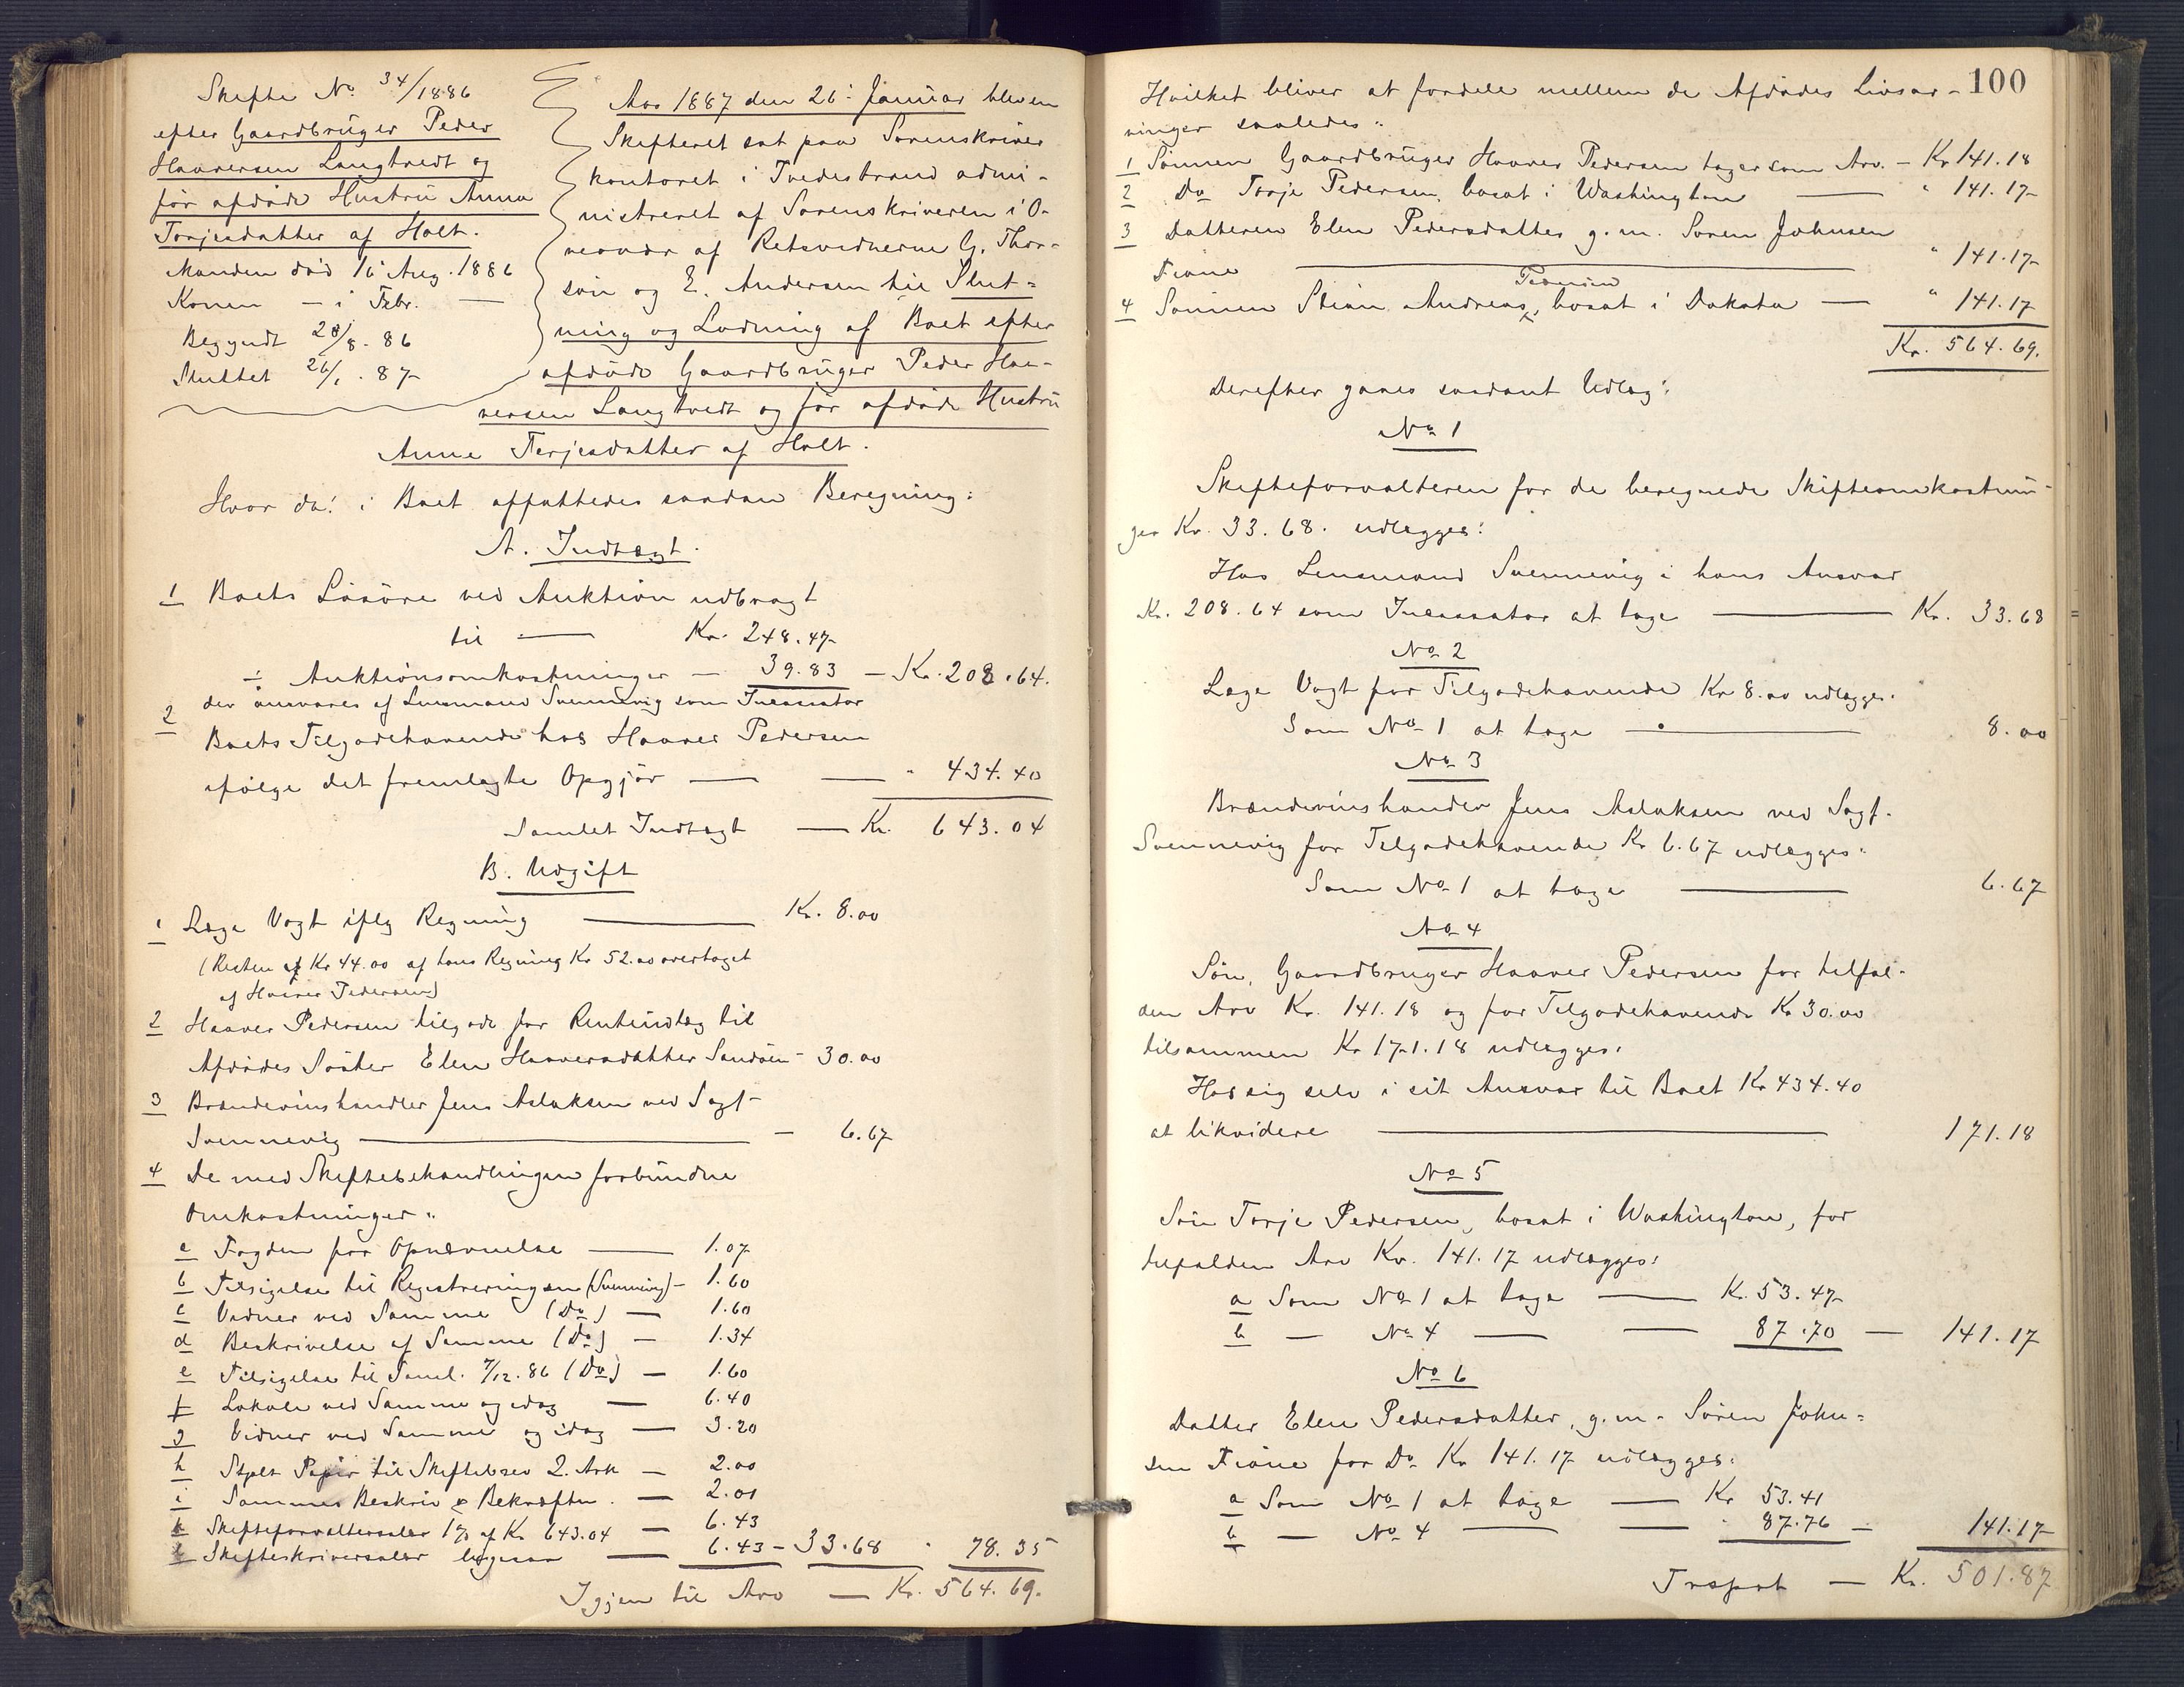 Skifte No 34/1886
efter Gaardbruger Peder
Haaversen Langtvedt og
før afdøde Hustru Anne
Torjesdatter af Holt.
Manden død 16 Aug. 1886
Konen — i Febr. —
Begyndt 28/8. 86
Sluttet 26/1. 87
Aar 1887 den 26. Januar blev en
Skifteret sat paa Sorenskriver
kontoret i Tvedestrand admi-
nistreret af Sorenskriveren i O-
vervær af Retsvidnerne G. Thor-
søn og E. Andersen til Slut-
ning og Lodning af Boet efter
afdøde Gaardbruger Peder Haa-
versen Langtvedt og før afdøde Hustru
Anne Terjesdatter af Holt.
Hvor da: i Boet affattedes saadan Beregning:
A. Indtægt.
1 Boets Løsøre ved Auktion udbragt
til — Kr. 248.47
÷ Auktionsomkostninger — 39.83 — Kr. 208.64.
der ansvares af Lensmand Svennevig som Incassator
2 Boets Tilgodehavende hos Haaver Pedersen
ifølge det fremlagte Opgjør — — " 434.40
Samlet Indtægt — Kr. 643.04
B. Udgift
1 Læge Vogt iflg Regning — Kr. 8.00
(Resten af Kr 44.00 af hans Regning Kr 52.00 overtaget
af Haaver Pedersen)
2 Haaver Pedersen tilgode for Renteudlæg til
Afdødes Søster Elen Haaversdatter Sandøen - 30.00
3 Brændevinshandler Jens Aslaksen ved Sagf-
Svennevig — - 6.67
4 De med Skiftebehandlingen forbundne
Omkostninger:
a Fogden for Opnævnelse — 1.07
b Tilsigelse til Registreringen (Svennevig) - 1.60
c Vidner ved Samme (Do) — 1.60
d Beskrivelse af Samme (Do) — 1.34
e Tilsigelse til Saml. 7/12. 86 (Do) — 1.60
f Lokale ved Samme og idag — 6.40
g Vidner ved Samme og idag — 3.20
h Stplt Papir til Skiftebrev 2. Ark — 2.00
i Sammes Beskriv & Bekræftn. — 2.01
k Skifteforvaltersalær 1% af Kr 643.04 — 6.43
l Skifteskriversalær ligesaa — 6.43 - 33.68 " 78.35
Igjen til Arv — Kr. 564.69.
100
Hvilket bliver at fordele mellem de Afdødes Livsar-
vinger saaledes:
1 Sønnen Gaardbruger Haaver Pedersen tager som Arv. - Kr 141.18
2 Do Torje Pedersen, bosat i Washington — " 141.17
3 Datteren Elen Pedersdatter g. m. Søren Johnsen
Fiane — " 141.17
Pedersen
4 Sønnen Stian Andreas, bosat i Dakota — " 141.17
Kr. 564.69.
Derefter gjøres saadant Udlæg:
No 1
Skifteforvalteren for de beregnede Skifteomkostnin-
ger Kr. 33.68. udlægges:
Hos Lensmand Svennevig i hans Ansvar
Kr. 208.64 som Incassator at tage — Kr. 33.68
No 2
Læge Vogt for Tilgodehavende Kr 8.00 udlægges:
Som No 1 at tage — 8.00
No 3
Brændevinshandler Jens Aslaksen ved Sagf.
Svennevig for Tilgodehavende Kr 6.67 udlægges:
Som No 1 at tage — 6.67
No 4
Søn, Gaardbruger Haaver Pedersen for tilfal-
den Arv Kr. 141.18 og for Tilgodehavende Kr 30.00
tilsammen Kr 171.18 udlægges:
Hos sig selv i sit Ansvar til Boet Kr 434.40
at likvidere — 171.18
No 5
Søn Torje Pedersen, bosat i Washington, for
tilfalden Arv Kr. 141.17 udlægges:
a Som No 1 at tage — Kr. 53.47
b — No 4 — — 87.70 — 141.17
No 6
Datter Elen Pedersdatter, g. m. Søren John-
sen Fiane for Do Kr 141.17 udlægges:
a Som No 1 at tage — Kr 53.41
b — No 4 — — " 87.76 — 141.17
Trsprt — Kr. 501.87